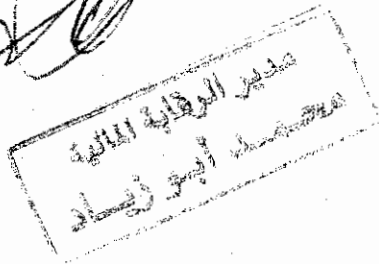 مدير الرقابة المالية
محمد أبو زياد